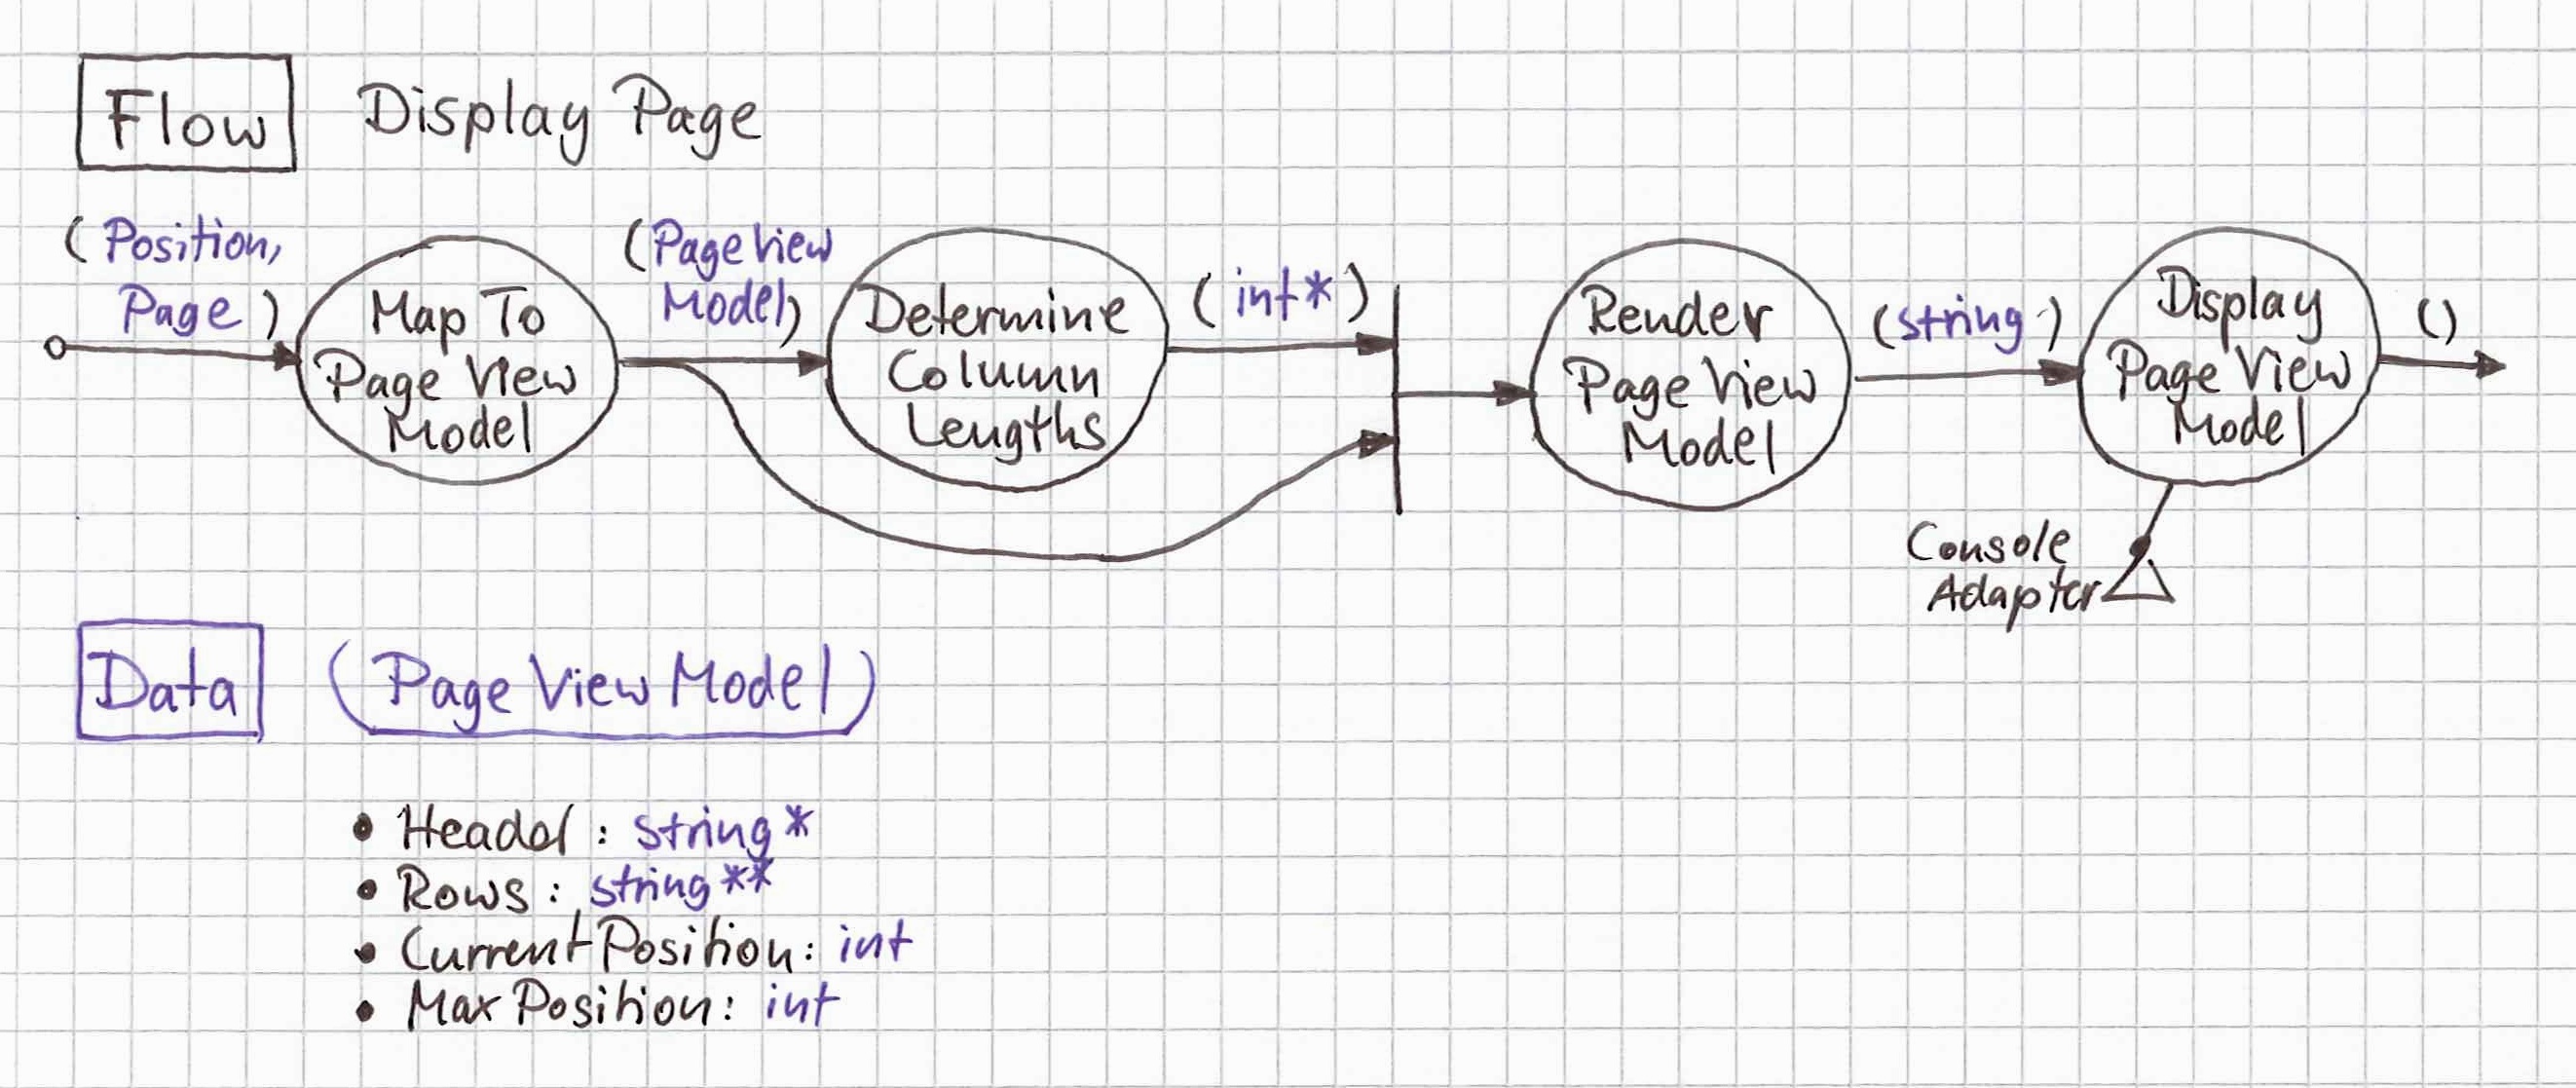 Flow Display Page
(Position,
Page)
Map To
Page View
Model
(PageView
Model)
Determine
Column
Lengths
(int*)
Render
Page View
Model
(string)
Display
Page View
Model
()
Console
Adapter
Data (Page View Model)
• Header: string*
• Rows: string**
• Current Position: int
• Max Position: int